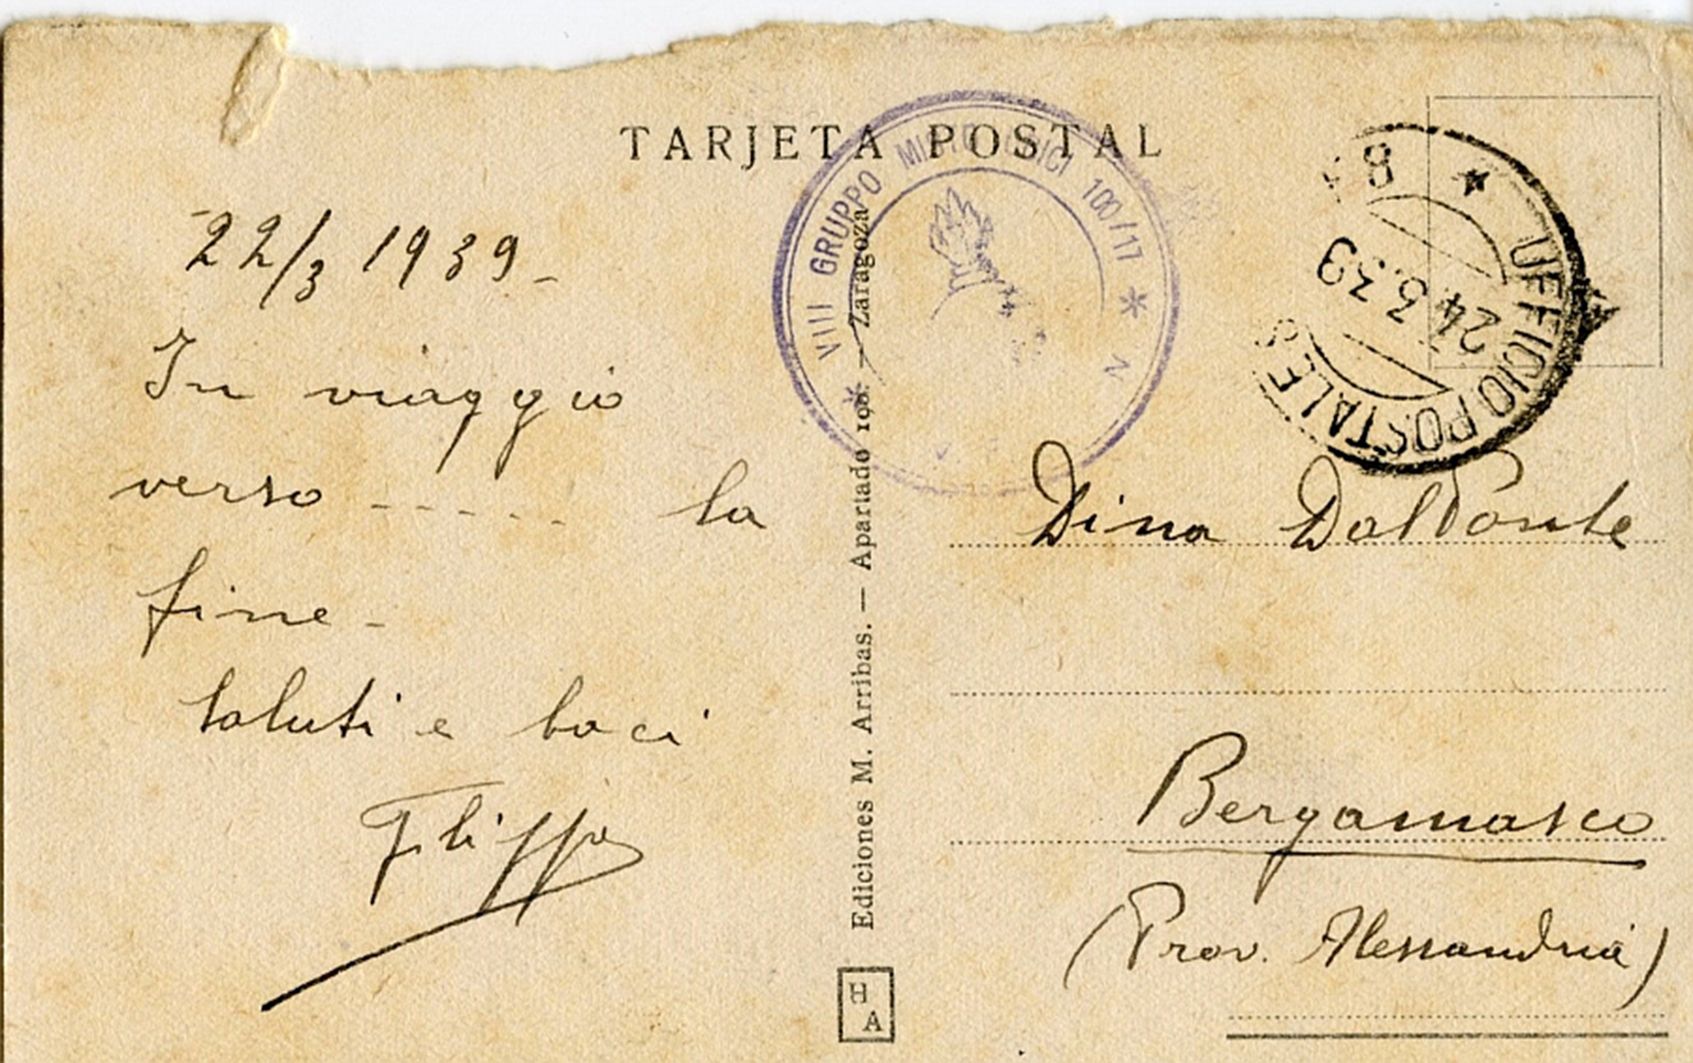 TARJETA POSTAL
VIII GRUPPO MISTO 100/17
UFFICIO POSTALE S
24.3.39
22/3 1939 -
In viaggio
verso ----- la
fine -
Saluti e baci
Filippo
Ediciones M. Arribas. — Apartado 198. — Zaragoza
H
A
Dina DalPonte
Bergamasco
(Prov. Alessandria)